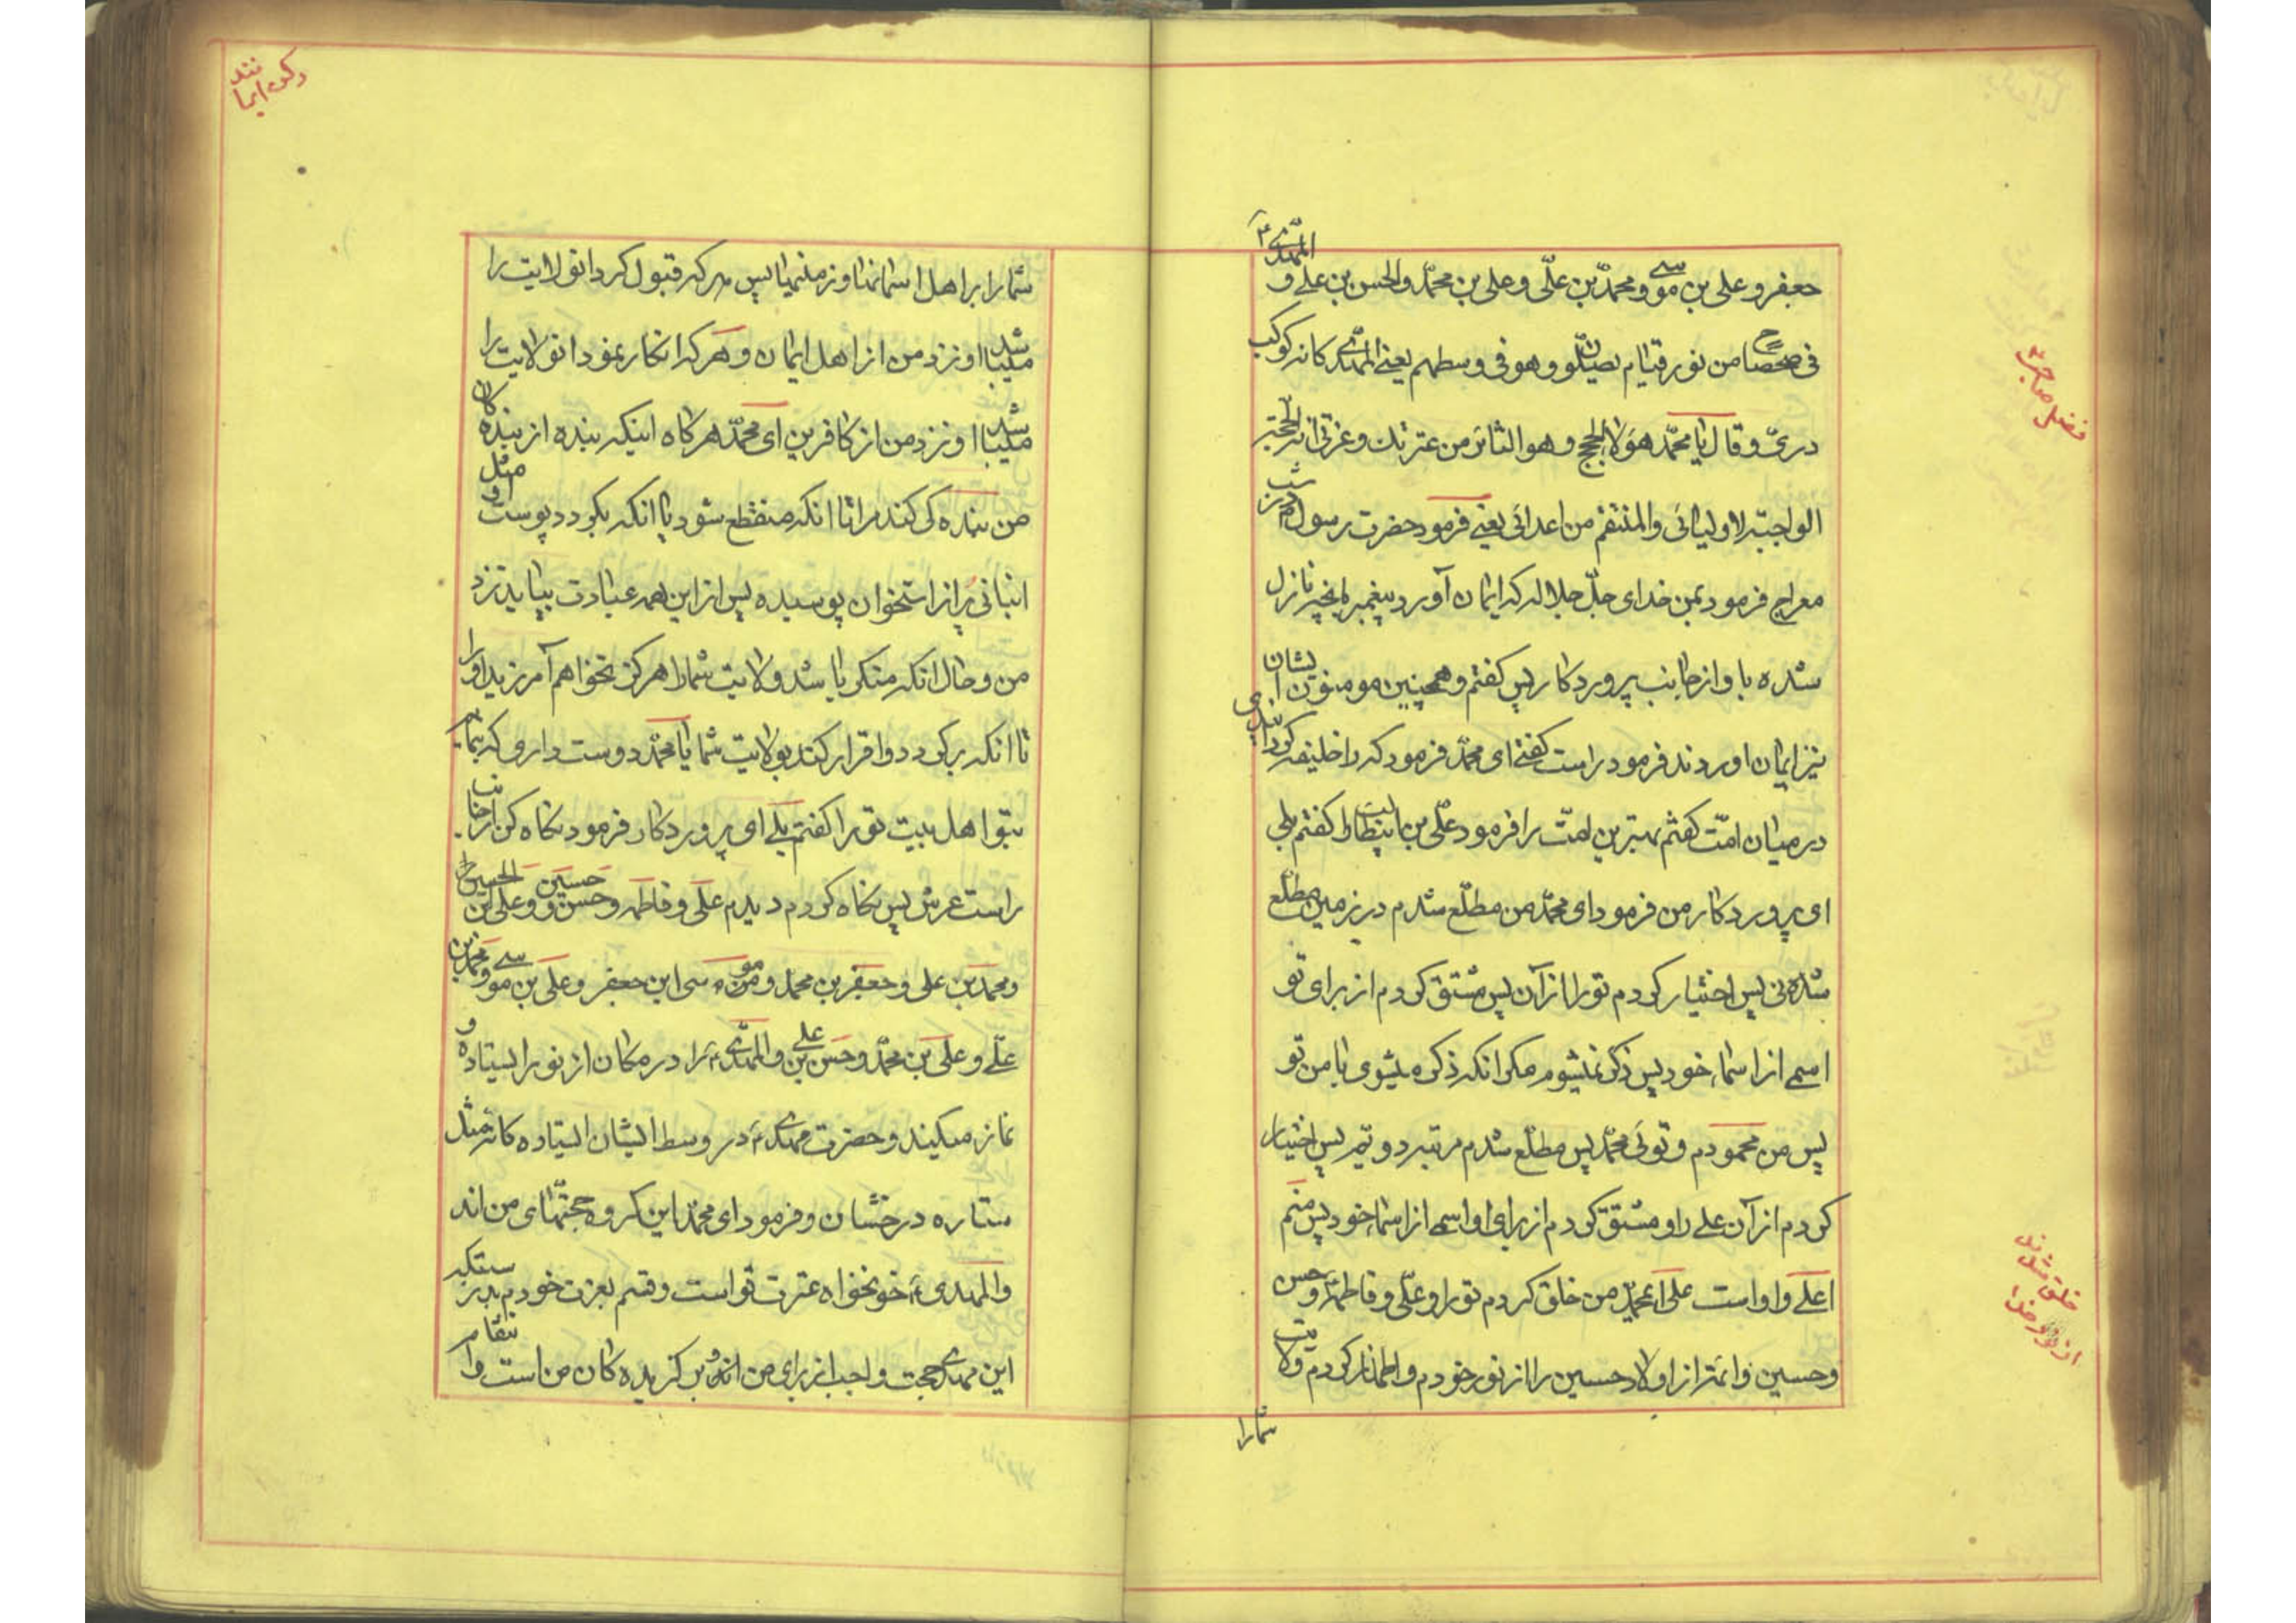 جعفر و علی بن موسی و محمّد بن علّی و علی بن محمّد و الحسن بن علی و المهدی
فی ضحضاح من نور قیام یصلّون و هو فی وسطهم یعنی المهدی کانه کوکب
درّی و قال یا محمّد هولاء الحجج و هو الثائر من عترتک و عزتی انه الحجّة
الواجبه لاولیائی و المنتقم من اعدائی یعنی فرمود حضرت رسول در شب
معراج فرمود بمن خدای جلّ جلاله که ایمان آورد پیغمبر بانچه نازل
شده باو از جانب پروردکار پس کفتم و همچنین مومنون ایشان
نیز ایمان اوردند فرمود راست کفتی ای محمّد فرمود که را خلیفه کردانیدی
در میان امّت کفتم بهترین امّت را فرمود علّی بن ابیطالب را کفتم بلی
ای پروردکار من فرمود ای محمّد من مطلّع شدم در زمین مطلّع
شدنی پس اختیار کردم تو را از آن پس مشتق کردم از برای تو
اسمی از اسماء خود پس ذکر نمیشوم مکر انکه ذکر میشوی با من تو
پس من محمودم و توئی محمّد پس مطلّع شدم مرتبه دویّم پس اختیار
کردم از آن علی را و مشتقّ کردم از برای او اسمی از اسماء خود پس منم
اعلی و او است علی ای محمّد من خلق کردم تو را و علّی و فاطمه و حسن
و حسین و ائمّه از اولاد حسین را از نور خودم و اظهار کردم ولایت
شما را
فضل صاحب
خلق شدند
از نور خدا
شما را بر اهل اسمانها و زمینها پس هر که قبول کرد انولایت را
میباشد او نزد من از اهل ایمان و هر که انکار نمود انولایت را
میباشد او نزد من از کافرین ای محمّد هرکاه اینکه بنده از بندهکان
من بندهکی کند مرا تا انکه منقطع شود یا انکه بکردد پوست او مثل
انبانی پر از استخوان پوسیده پس از این همه عبادت بیاید نزد
من و حال انکه منکر باشد ولایت شما را هرکز نخواهم آمرزید او را
تا انکه برکردد و اقرار کند بولایت شما یا محمّد دوست داری که بنمایم
بتو اهل بیت تو را کفتم بلی ای پروردکار فرمود نکاه کن از جانب
راست عرش پس نکاه کردم دیدم علی و فاطمه و حسن و حسین و علی بن الحسین را
و محمد بن علی و جعفر بن محمد و موسی ابن جعفر و علی بن موسی و محمد بن
علّی و علی بن محمّد و حسن بن علی و المهدی را در مکان از نور ایستاده و
نماز میکنند و حضرت مهدی در وسط ایشان ایستاده کانه مثل
ستاره درخشان و فرمود ای محمّد این کروه حجّتهای من اند
و المهدی خونخواه عترت تو است و قسم بعزت خودم بدرستیکه
این مهدی حجت واجب از برای من اند و بن کزیدهکان من است و انتقام
رکن ایمانند